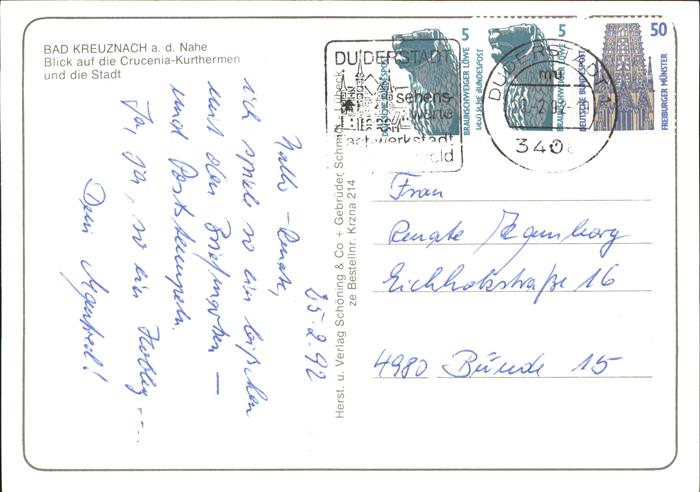 BAD KREUZNACH a. d. Nahe
Blick auf die Crucenia-Kurthermen
und die Stadt
25-2-92
Hallo-Renate,
ich spiele so ein bißchen
mit den Briefmarken -
und Poststempeln.
Ja, ja, so ein Hobby ---.
Dein Manfred!
Herst. u. Verlag Schöning & Co + Gebrüder Schmidt, Lübeck
ze Bestellnr. Krzna 214
DUDERSTADT
sehens-
werte
Fachwerkstadt
5
BRAUNSCHWEIGER LÖWE
DEUTSCHE BUNDESPOST
5
BRAUNSCHWEIGER LÖWE
DEUTSCHE BUNDESPOST
50
FREIBURGER MÜNSTER
DUDERSTADT
mu
3408
Frau
Renate
Eichholzstraße 16
4980 Bünde 15